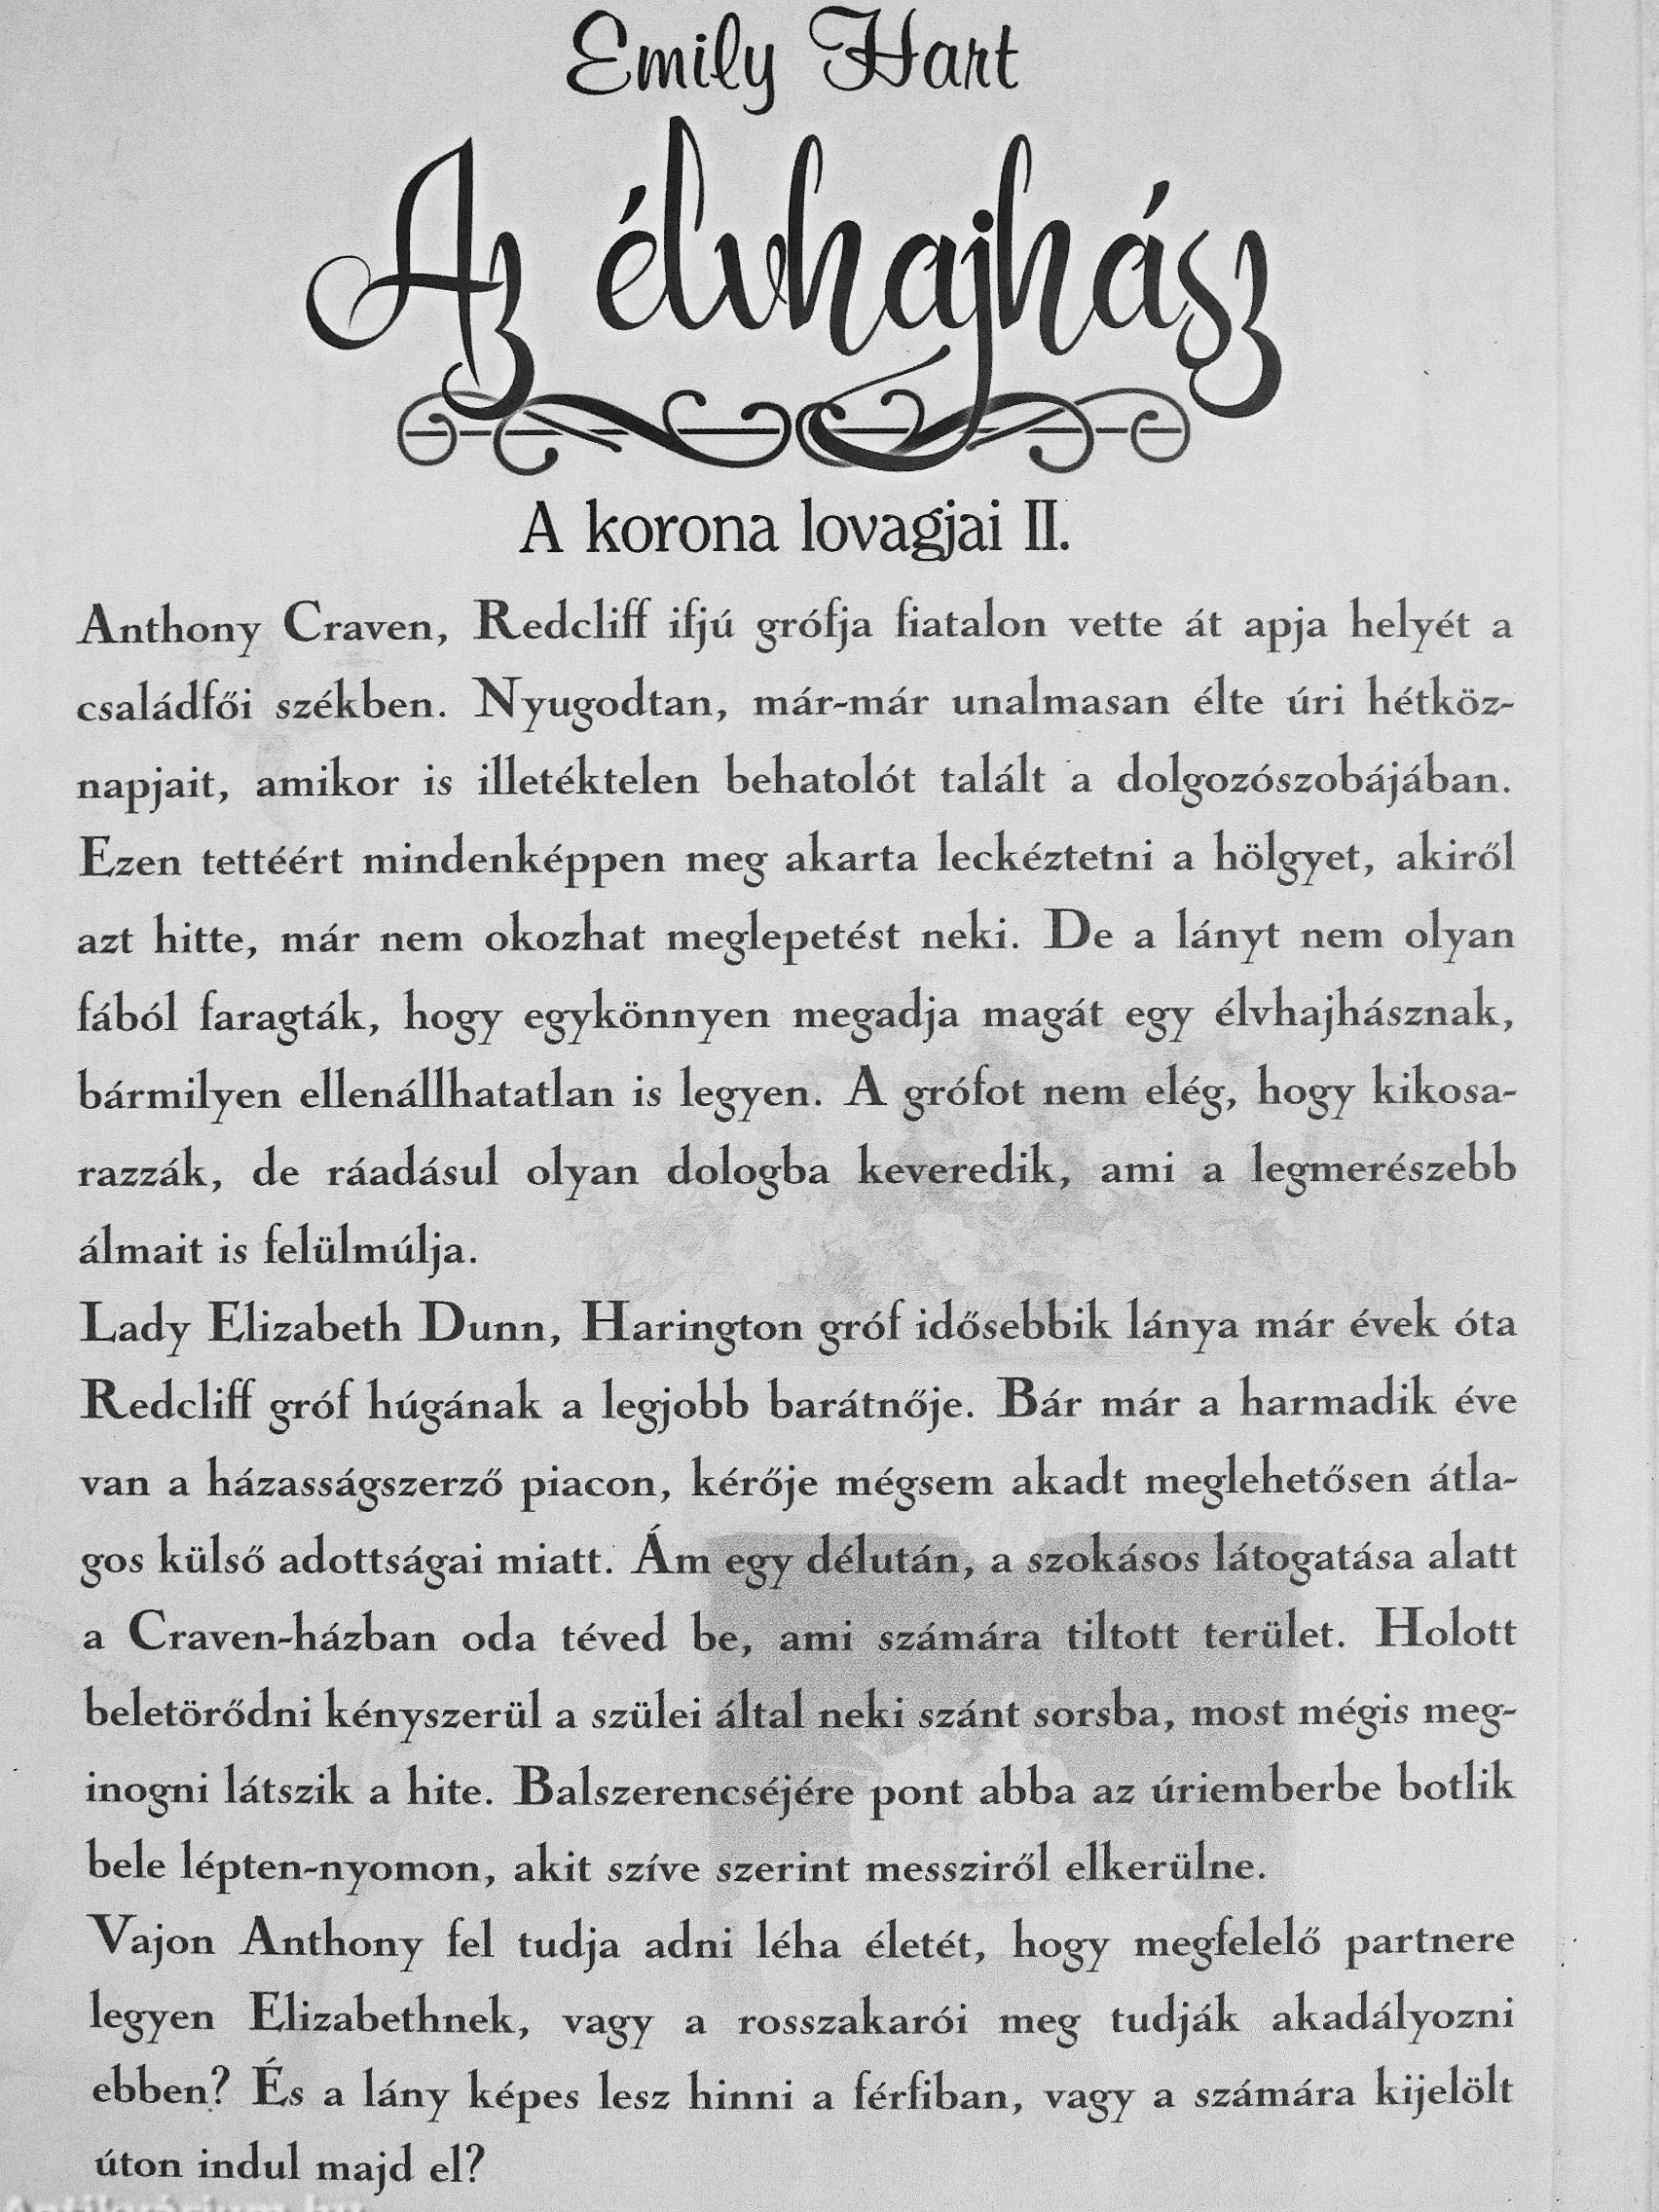 Emily Hart
Az élvhajhász
A korona lovagjai II.
Anthony Craven, Redcliff ifjú grófja fiatalon vette át apja helyét a
családfői székben. Nyugodtan, már-már unalmasan élte úri hétköz-
napjait, amikor is illetéktelen behatolót talált a dolgozószobájában.
Ezen tettéért mindenképpen meg akarta leckéztetni a hölgyet, akiről
azt hitte, már nem okozhat meglepetést neki. De a lányt nem olyan
fából faragták, hogy egykönnyen megadja magát egy élvhajhásznak,
bármilyen ellenállhatatlan is legyen. A grófot nem elég, hogy kikosa-
razzák, de ráadásul olyan dologba keveredik, ami a legmerészebb
álmait is felülmúlja.
Lady Elizabeth Dunn, Harington gróf idősebbik lánya már évek óta
Redcliff gróf húgának a legjobb barátnője. Bár már a harmadik éve
van a házasságszerző piacon, kérője mégsem akadt meglehetősen átla-
gos külső adottságai miatt. Ám egy délután, a szokásos látogatása alatt
a Craven-házban oda téved be, ami számára tiltott terület. Holott
beletörődni kényszerül a szülei által neki szánt sorsba, most mégis meg-
inogni látszik a hite. Balszerencséjére pont abba az úriemberbe botlik
bele lépten-nyomon, akit szíve szerint messziről elkerülne.
Vajon Anthony fel tudja adni léha életét, hogy megfelelő partnere
legyen Elizabethnek, vagy a rosszakarói meg tudják akadályozni
ebben? És a lány képes lesz hinni a férfiban, vagy a számára kijelölt
úton indul majd el?